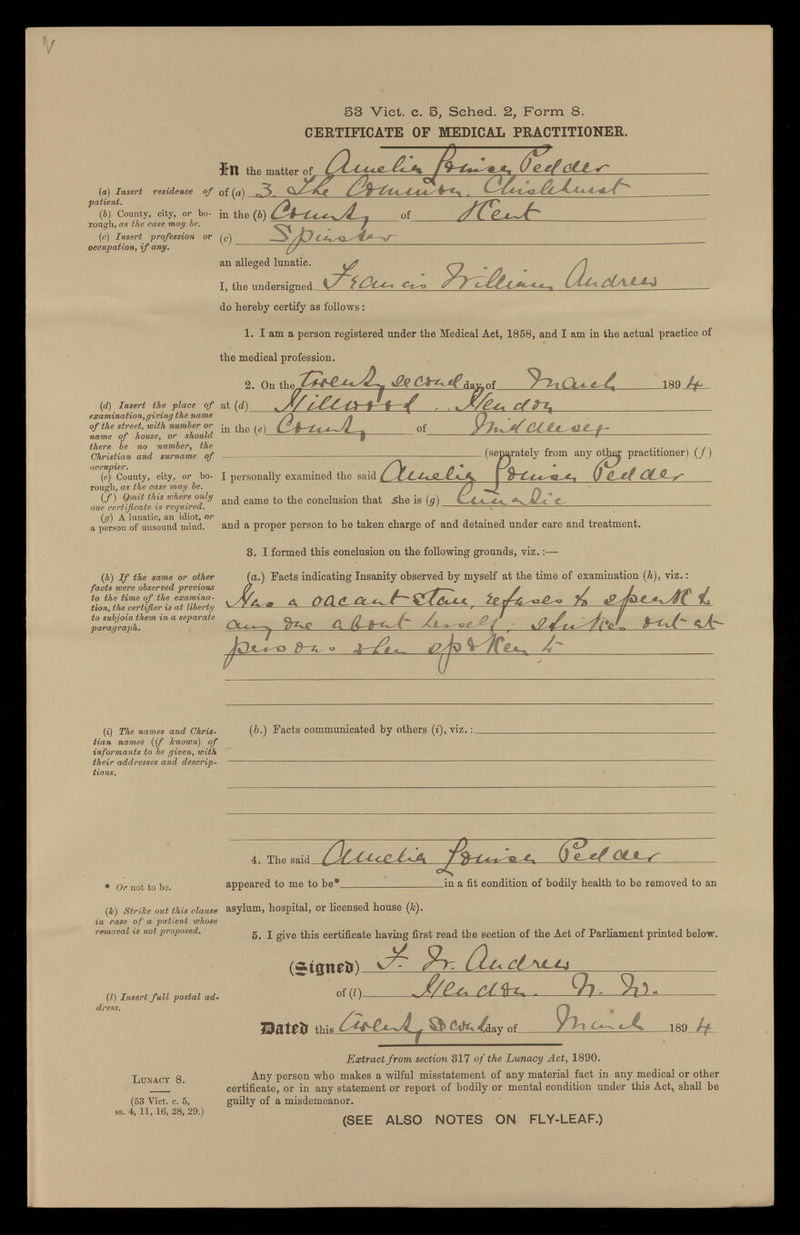 53 Vict. c. 5, Sched. 2, Form 8.
CERTIFICATE OF MEDICAL PRACTITIONER.
In the matter of Amelia Louisa Pedder
(a) Insert residence of patient.
of (a) 3. The Common. Chislehurst
(b) County, city, or borough, as the case may be.
in the (b) County of Kent
(c) Insert profession or occupation, if any.
(c) Spinster
an alleged lunatic.
I, the undersigned Francis William Andrew
do hereby certify as follows:
1. I am a person registered under the Medical Act, 1858, and I am in the actual practice of
the medical profession.
2. On the Twenty second day of March 1894
(d) Insert the place of examination, giving the name of the street, with number or name of house, or should there be no number, the Christian and surname of occupier.
at (d) Hillwood . . Hendon
in the (e) County of Middlesex
(separately from any other practitioner) (f)
(e) County, city, or borough, as the case may be.
I personally examined the said Amelia Louisa Pedder
(f) Omit this where only one certificate is required.
and came to the conclusion that She is (g) Lunatic
(g) A lunatic, an idiot, or a person of unsound mind.
and a proper person to be taken charge of and detained under care and treatment.
3. I formed this conclusion on the following grounds, viz.:—
(h) If the same or other facts were observed previous to the time of the examination, the certifier is at liberty to subjoin them in a separate paragraph.
(a.) Facts indicating Insanity observed by myself at the time of examination (h), viz.:
Has a vacant stare, refuses to speak to
any one about herself, strikes out at
persons when spoken to
(i) The names and Christian names (if known) of informants to be given, with their addresses and descriptions.
(b.) Facts communicated by others (i), viz.:
4. The said Amelia Louisa Pedder
* Or not to be.
appeared to me to be* in a fit condition of bodily health to be removed to an
(k) Strike out this clause in case of a patient whose removal is not proposed.
asylum, hospital, or licensed house (k).
5. I give this certificate having first read the section of the Act of Parliament printed below.
(Signed) F. W. Andrew
(l) Insert full postal address.
of (l) Hendon. N. W.
Dated this twenty second day of March 1894
Extract from section 317 of the Lunacy Act, 1890.
LUNACY 8.
(53 Vict. c. 5,
ss. 4, 11, 16, 28, 29.)
Any person who makes a wilful misstatement of any material fact in any medical or other
certificate, or in any statement or report of bodily or mental condition under this Act, shall be
guilty of a misdemeanor.
(SEE ALSO NOTES ON FLY-LEAF.)